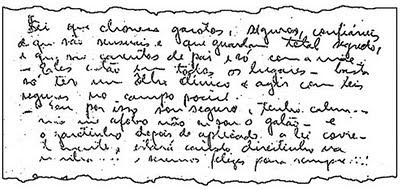 Sei que garotos, seguros, confiáveis
e que são sensuais e que guardam total segredo,
e que carentes de pai e só com a mãe
– Eles estão em todos os lugares – basta
só ter um olho clínico e agir com leis
seguras no campo social
– Eu por isso sou seguro e tenho calma –
não me afobo não sou o e
o garotinho depois de aplicada a lei corre-
tamente, estará caindo direitinho na
minha seremos felizes para sempre!!!